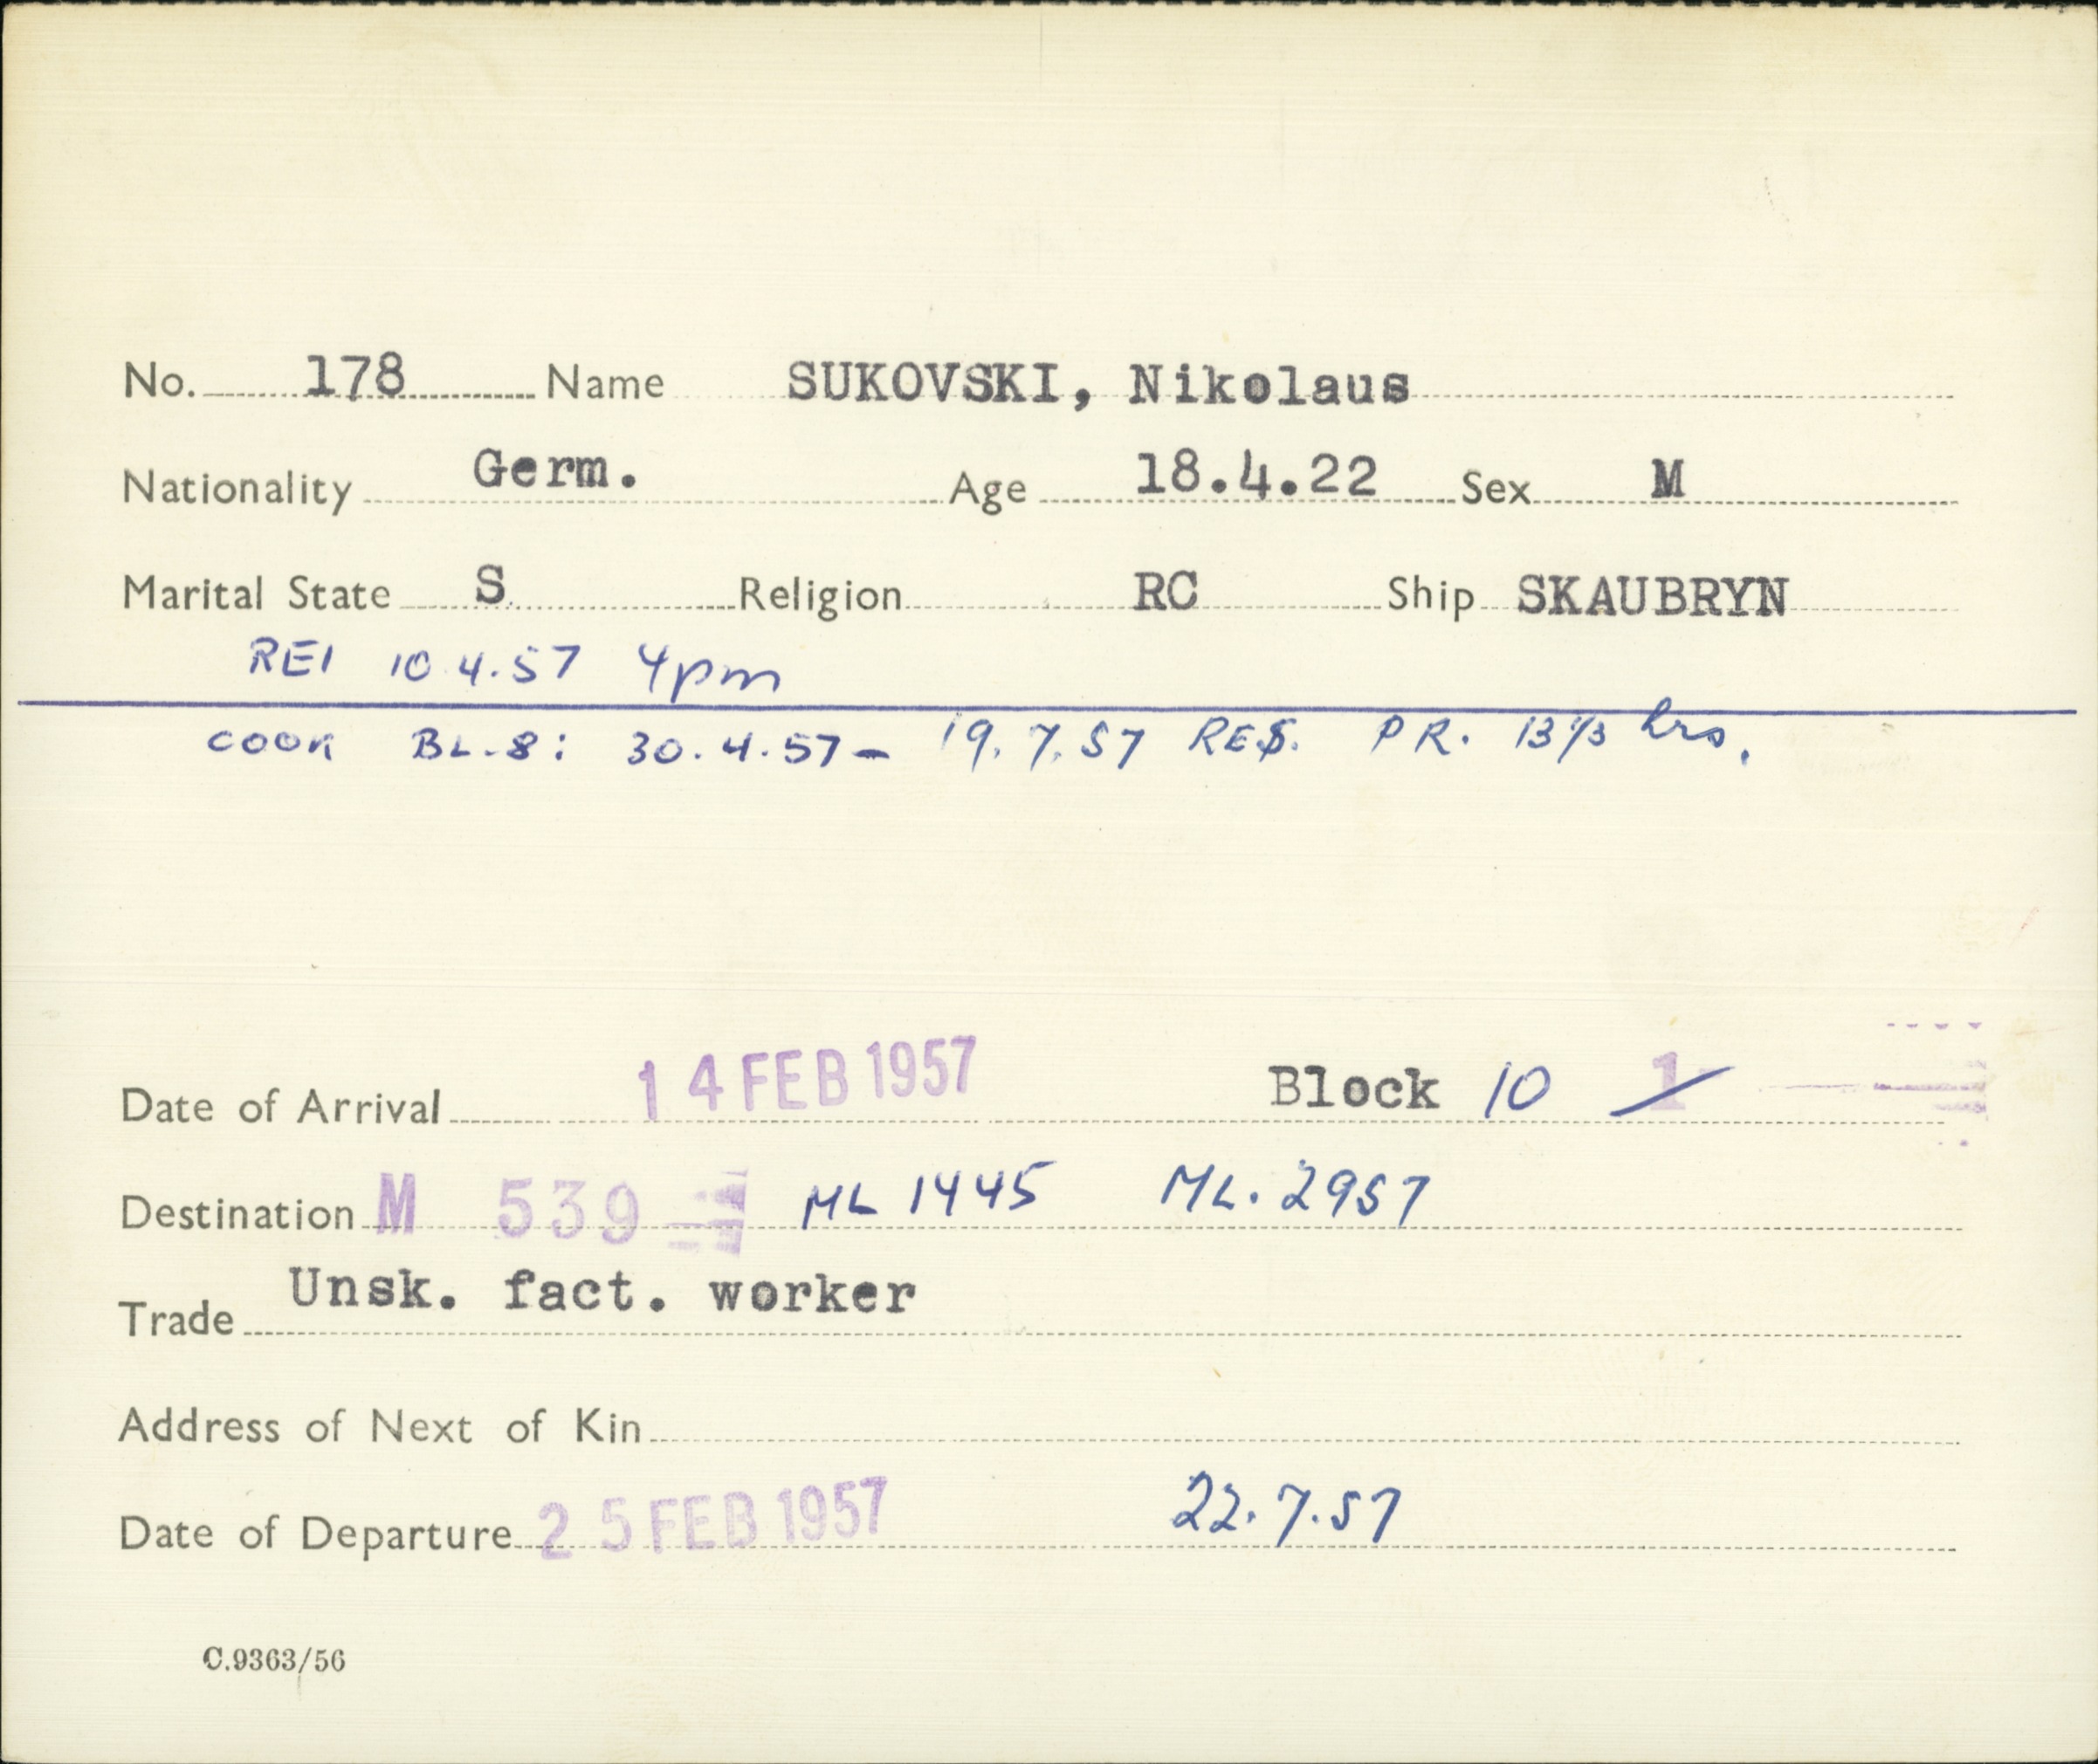 No. 178 Name SUKOVSKI, Nikolaus
Nationality Germ. Age 18.4.22 Sex M
Marital State S Religion RC Ship SKAUBRYN
REI 10 4.57 4pm
COOK BL.8: 30.4.57 - 19.7.57 RES. PR. 13⅓ hrs.
Date of Arrival 14 FEB 1957 Block 10 1
Destination M 539 ML 1445 ML. 2957
Trade Unsk. fact. worker
Address of Next of Kin
Date of Departure 25 FEB 1957 22.7.57
C.9363/56